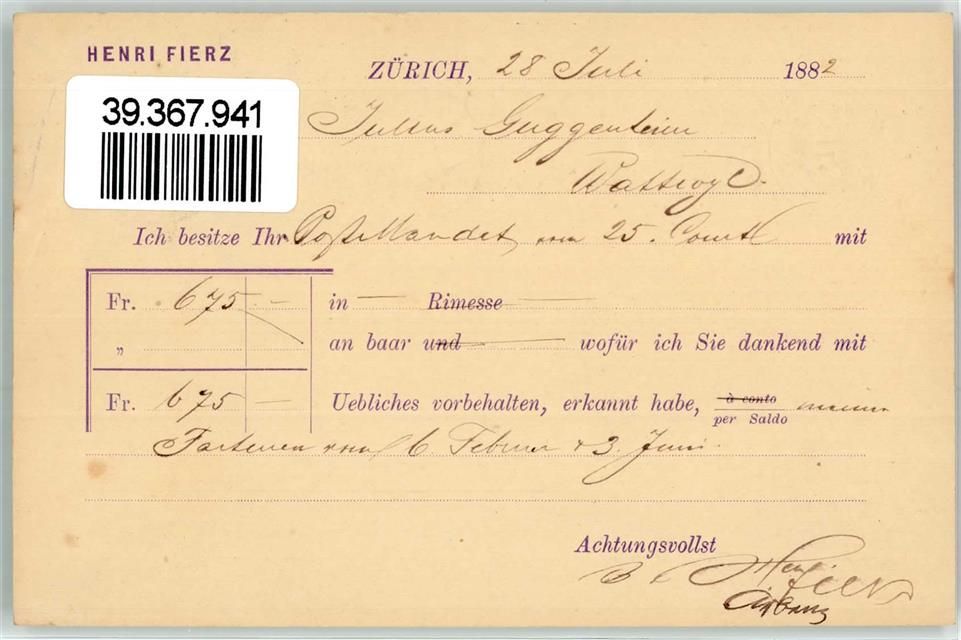 HENRI FIERZ
ZÜRICH, 28 Juli 1882
39.367.941
Julius Guggenheim
Wattwyl.
Ich besitze Ihr Postmandat vom 25. Court mit
Fr. 675 — in — Rimesse —
„ an baar und — wofür ich Sie dankend mit
Fr. 675 — Uebliches vorbehalten, erkannt habe, à conto per Saldo meiner
Facturen vom 6. Februar & 3. Juni.
Achtungsvollst
Henri Fierz